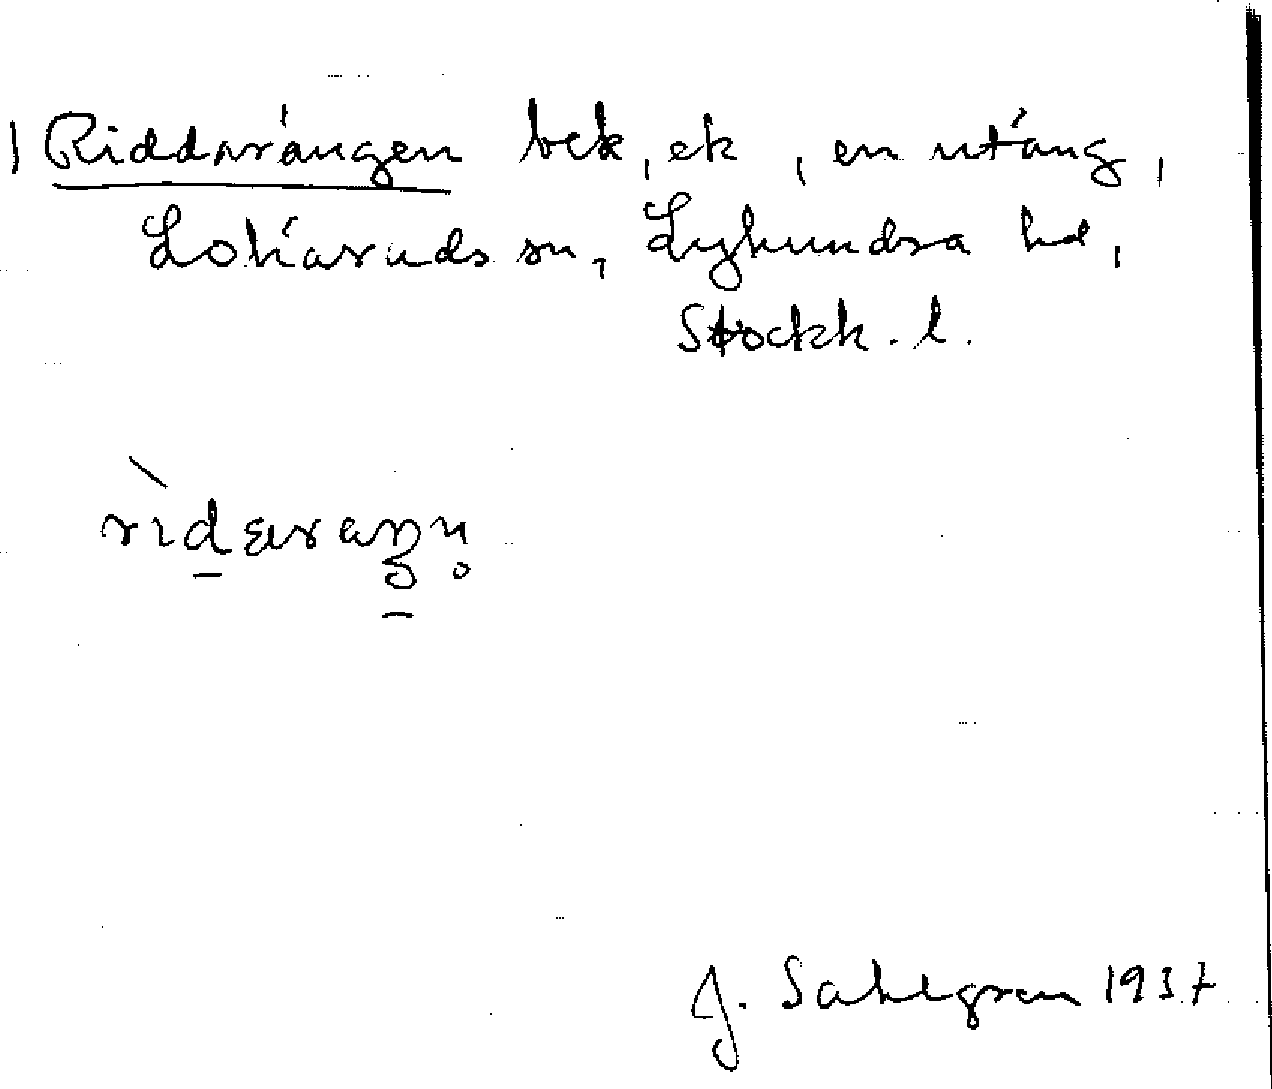 1 Riddarängen bek, ek, en utäng,
Lohärads sn, Lyhundra hd,
Stockh. l.
J. Sahlgren 1937